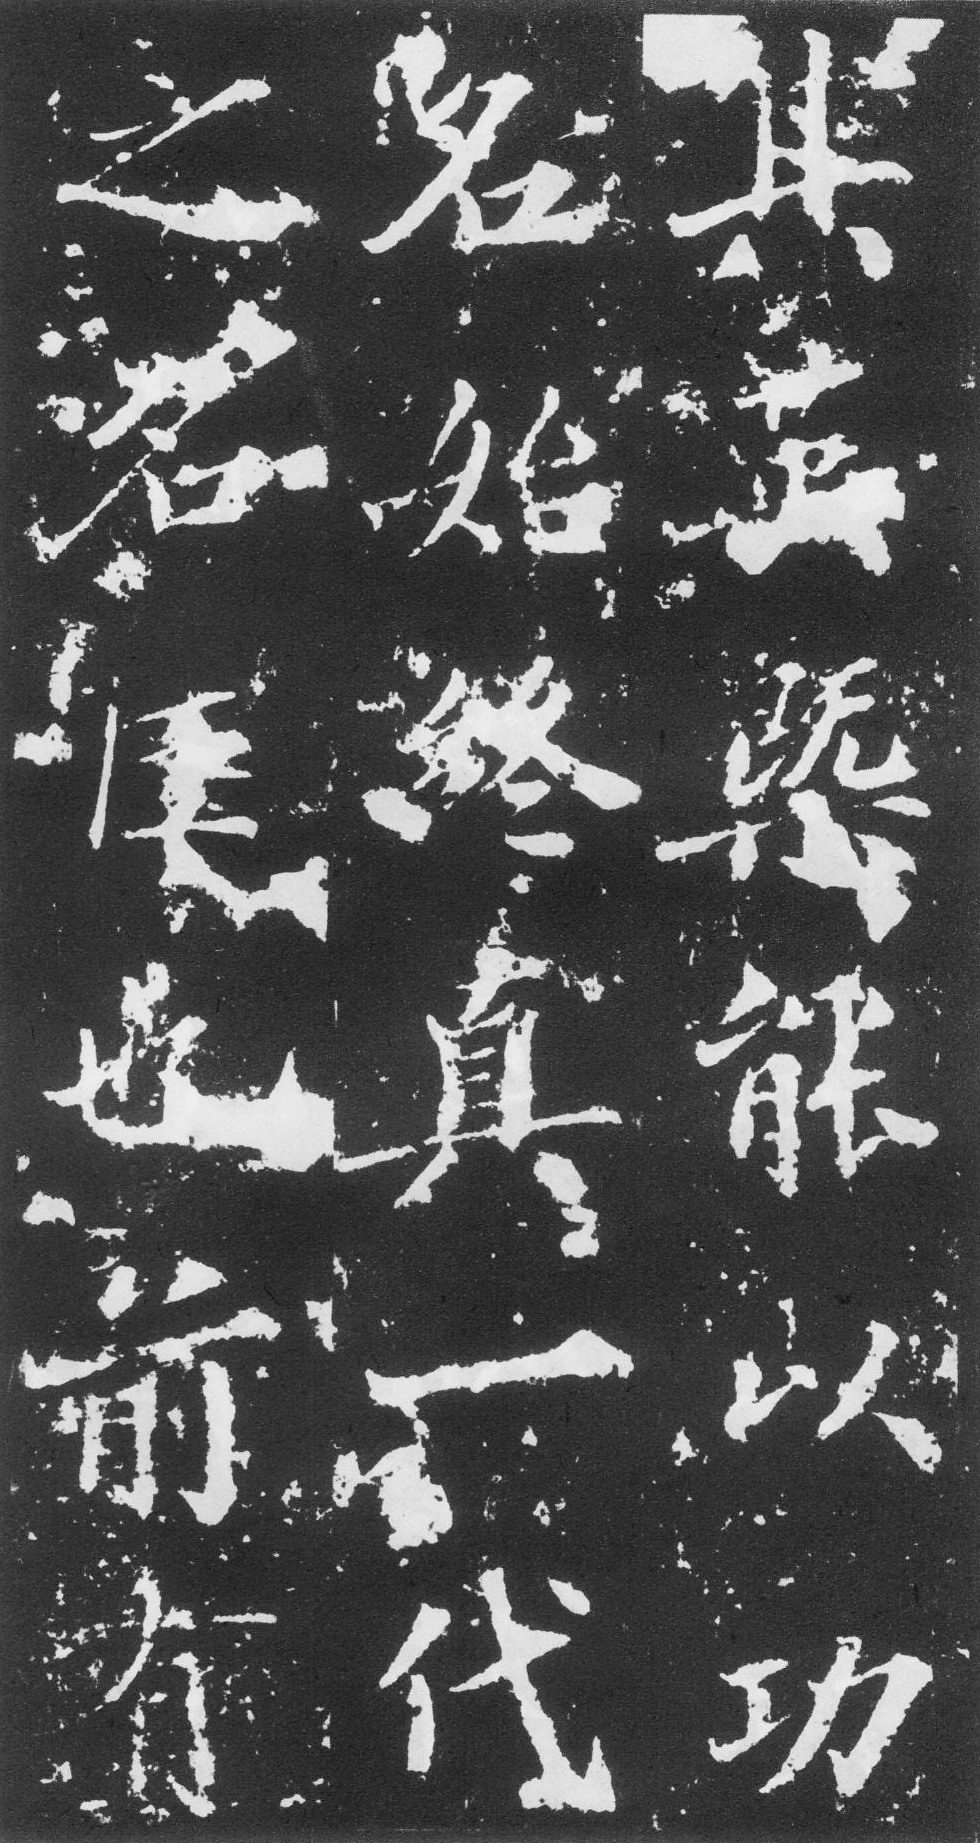 其英槩能以功
名始終真一代
之君臣也前有